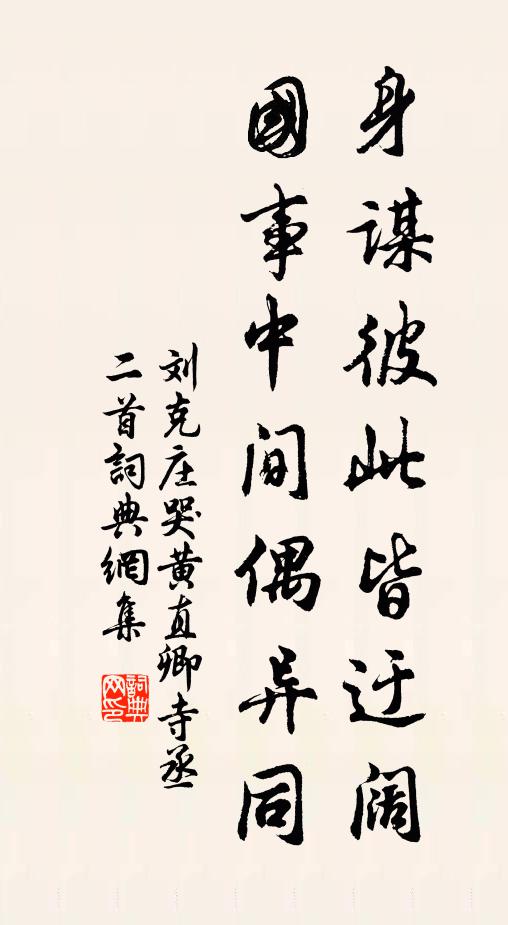 身謀彼此皆迂闊
國事中间偶异同
刘克庄哭黄直卿寺丞
二首詞典網集
詞典
网印